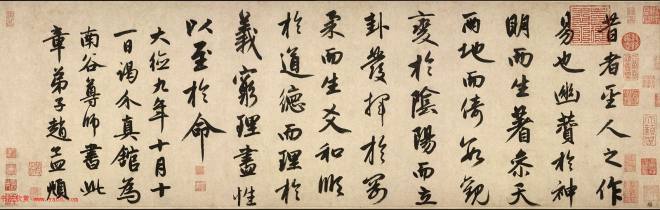 昔者聖人之作
易也幽贊於神
明而生蓍參天
兩地而倚數觀
變於陰陽而立
卦發揮於剛
柔而生爻和順
於道德而理於
義窮理盡性
以至於命
大德九年十月十
一日謁介真館為
南谷尊師書此
章弟子趙孟頫
书法欣赏